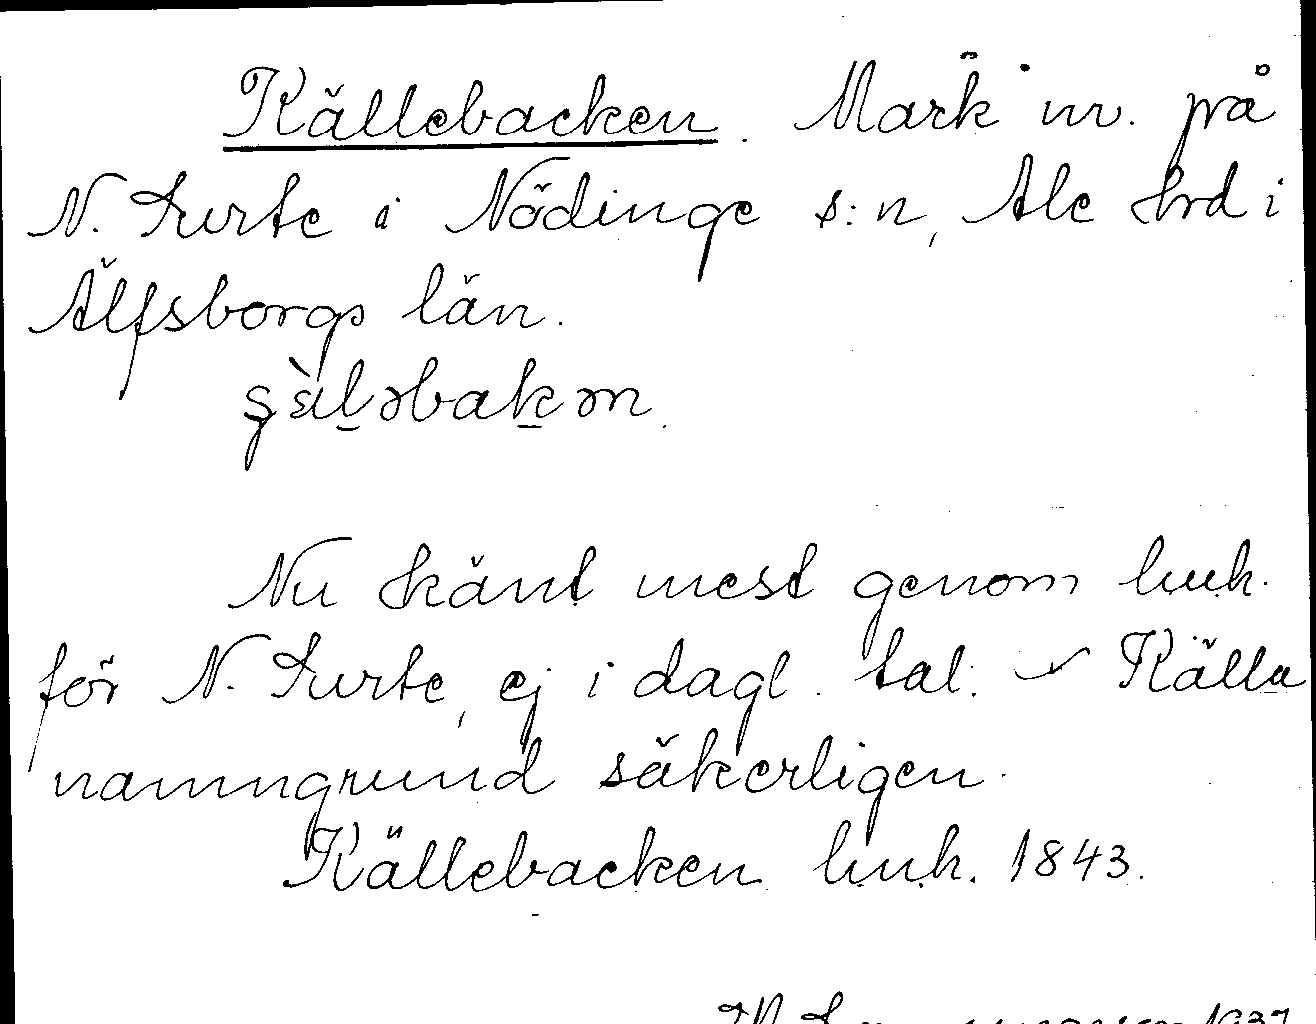 Källebacken. Mark nr. på
N. Surte i Nödinge s:n, Ale hrd i
Älfsborgs län.
Nu känt mest genom hmk.
för N. Surte, ej i dagl. tal. Källa
namngrund säkerligen.
Källebacken hmk. 1843.
1937